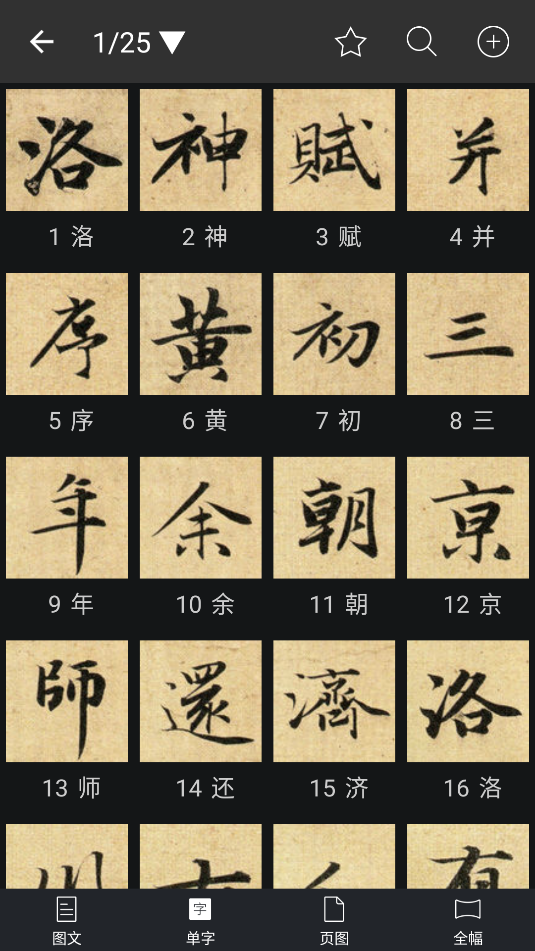 1/25
洛 神 賦 并
1 洛 2 神 3 赋 4 并
序 黄 初 三
5 序 6 黄 7 初 8 三
年 余 朝 京
9 年 10 余 11 朝 12 京
師 還 濟 洛
13 师 14 还 15 济 16 洛
字
图文 单字 页图 全幅